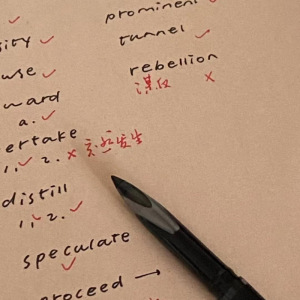 prominent
tunnel
rebellion
谋反
ward
a.
ertake
1. 2. 发生
distill
1. 2.
speculate
proceed →